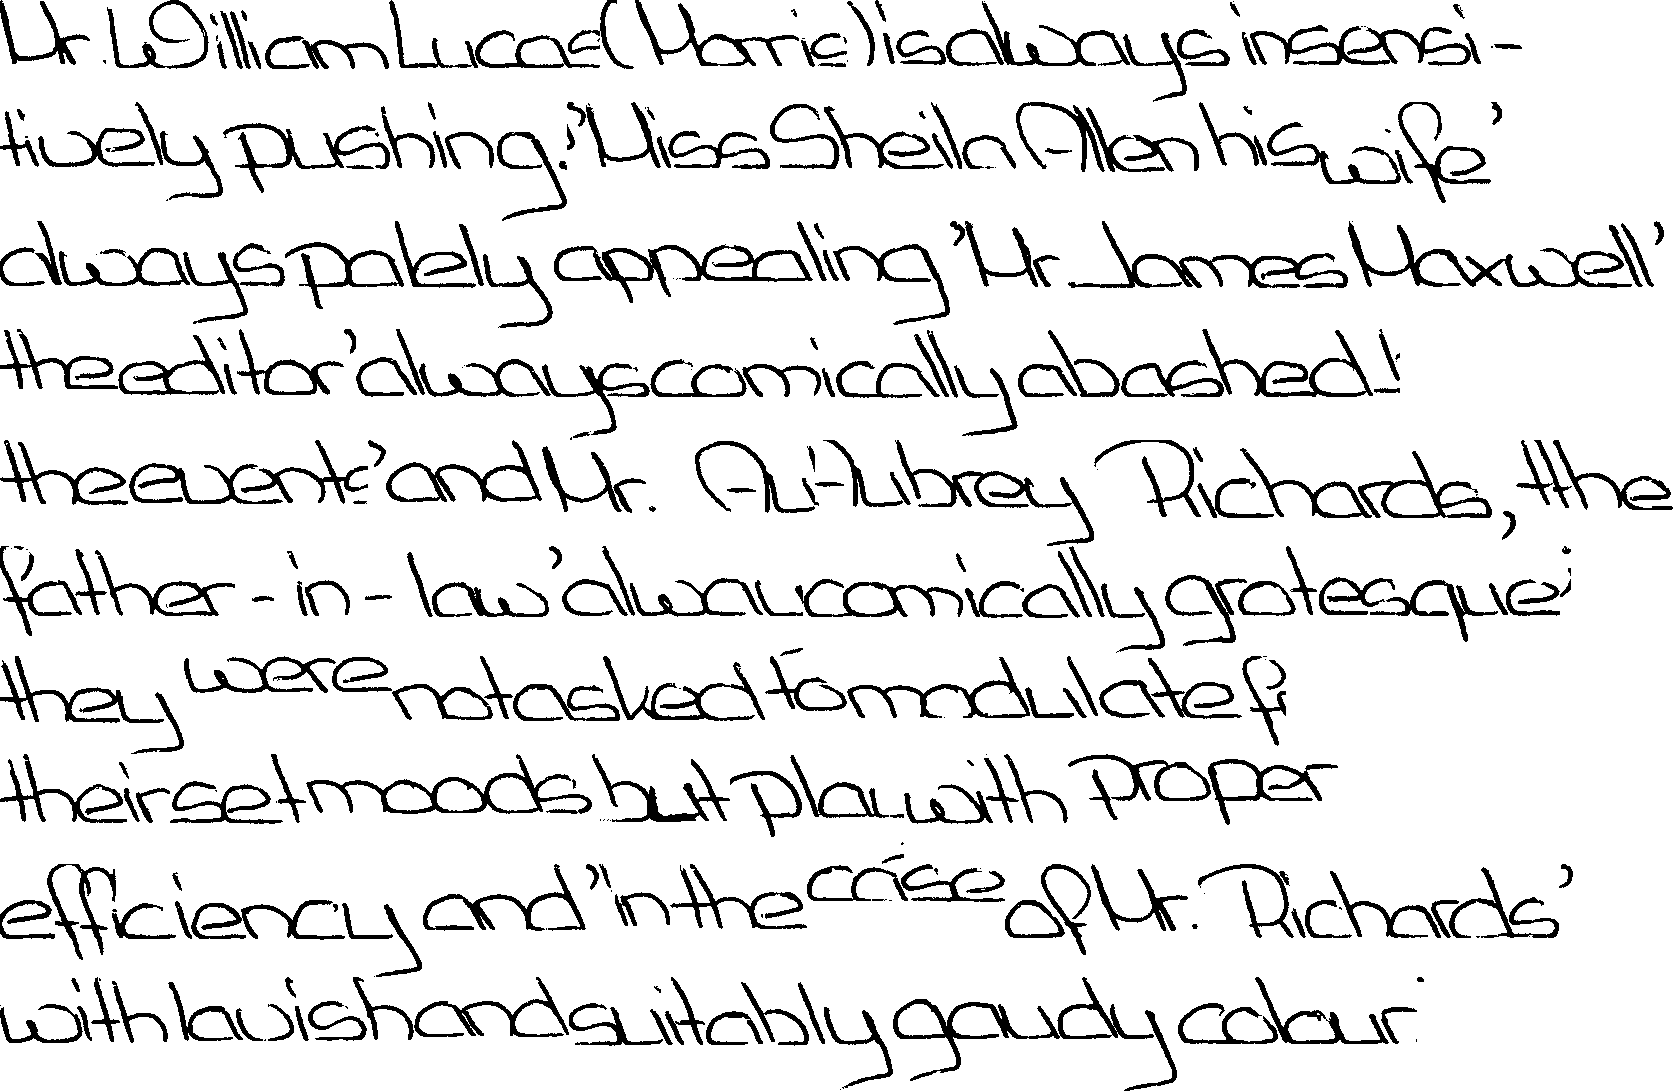 Mr. William Lucas (Morris) is always insensi-
tively pushing.' 'Miss Sheila Allen his wife'
always palely appealing 'Mr. James Maxwell'
the editor' always comically abashed!
the events' and Mr. Au-Aubrey Richards, tthe
father-in-law' alway comically grotesque'
they were not asked to modulate f
their set moods but play with proper
efficiency and "in the case of Mr. Richards'
with lavish and suitably gaudy colour.